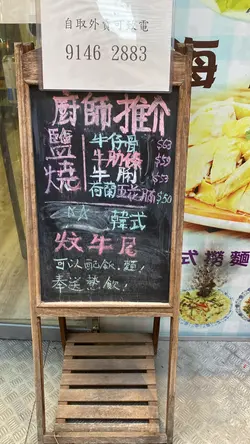 自取外賣可致電
9146 2883
廚師推介
鹽燒
牛仔骨 $63
牛肋條 $59
牛脷 $53
荷蘭五花腩 $50
韓式
炆牛尾
可以配飯.麵!
奉送熱飲!
海
式撈麵